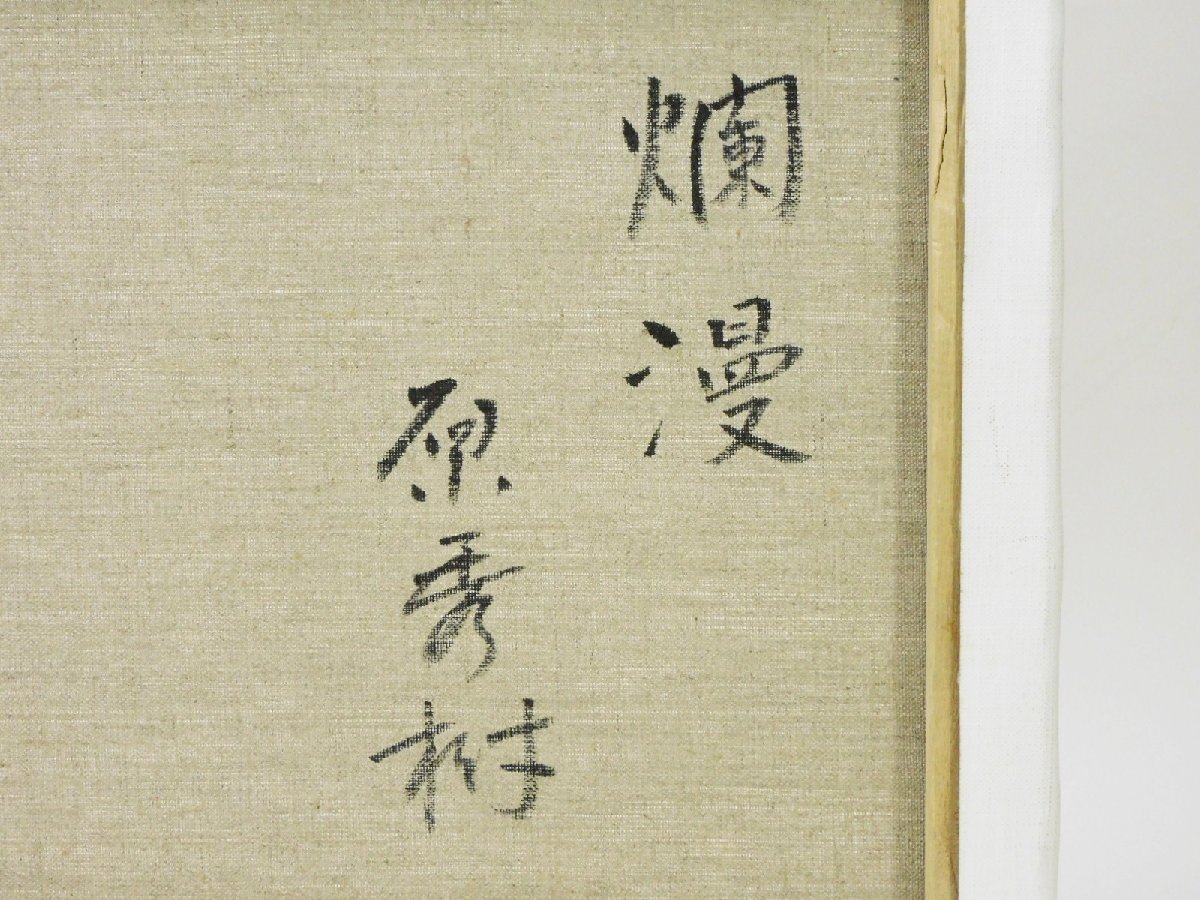 爛漫
原秀樹